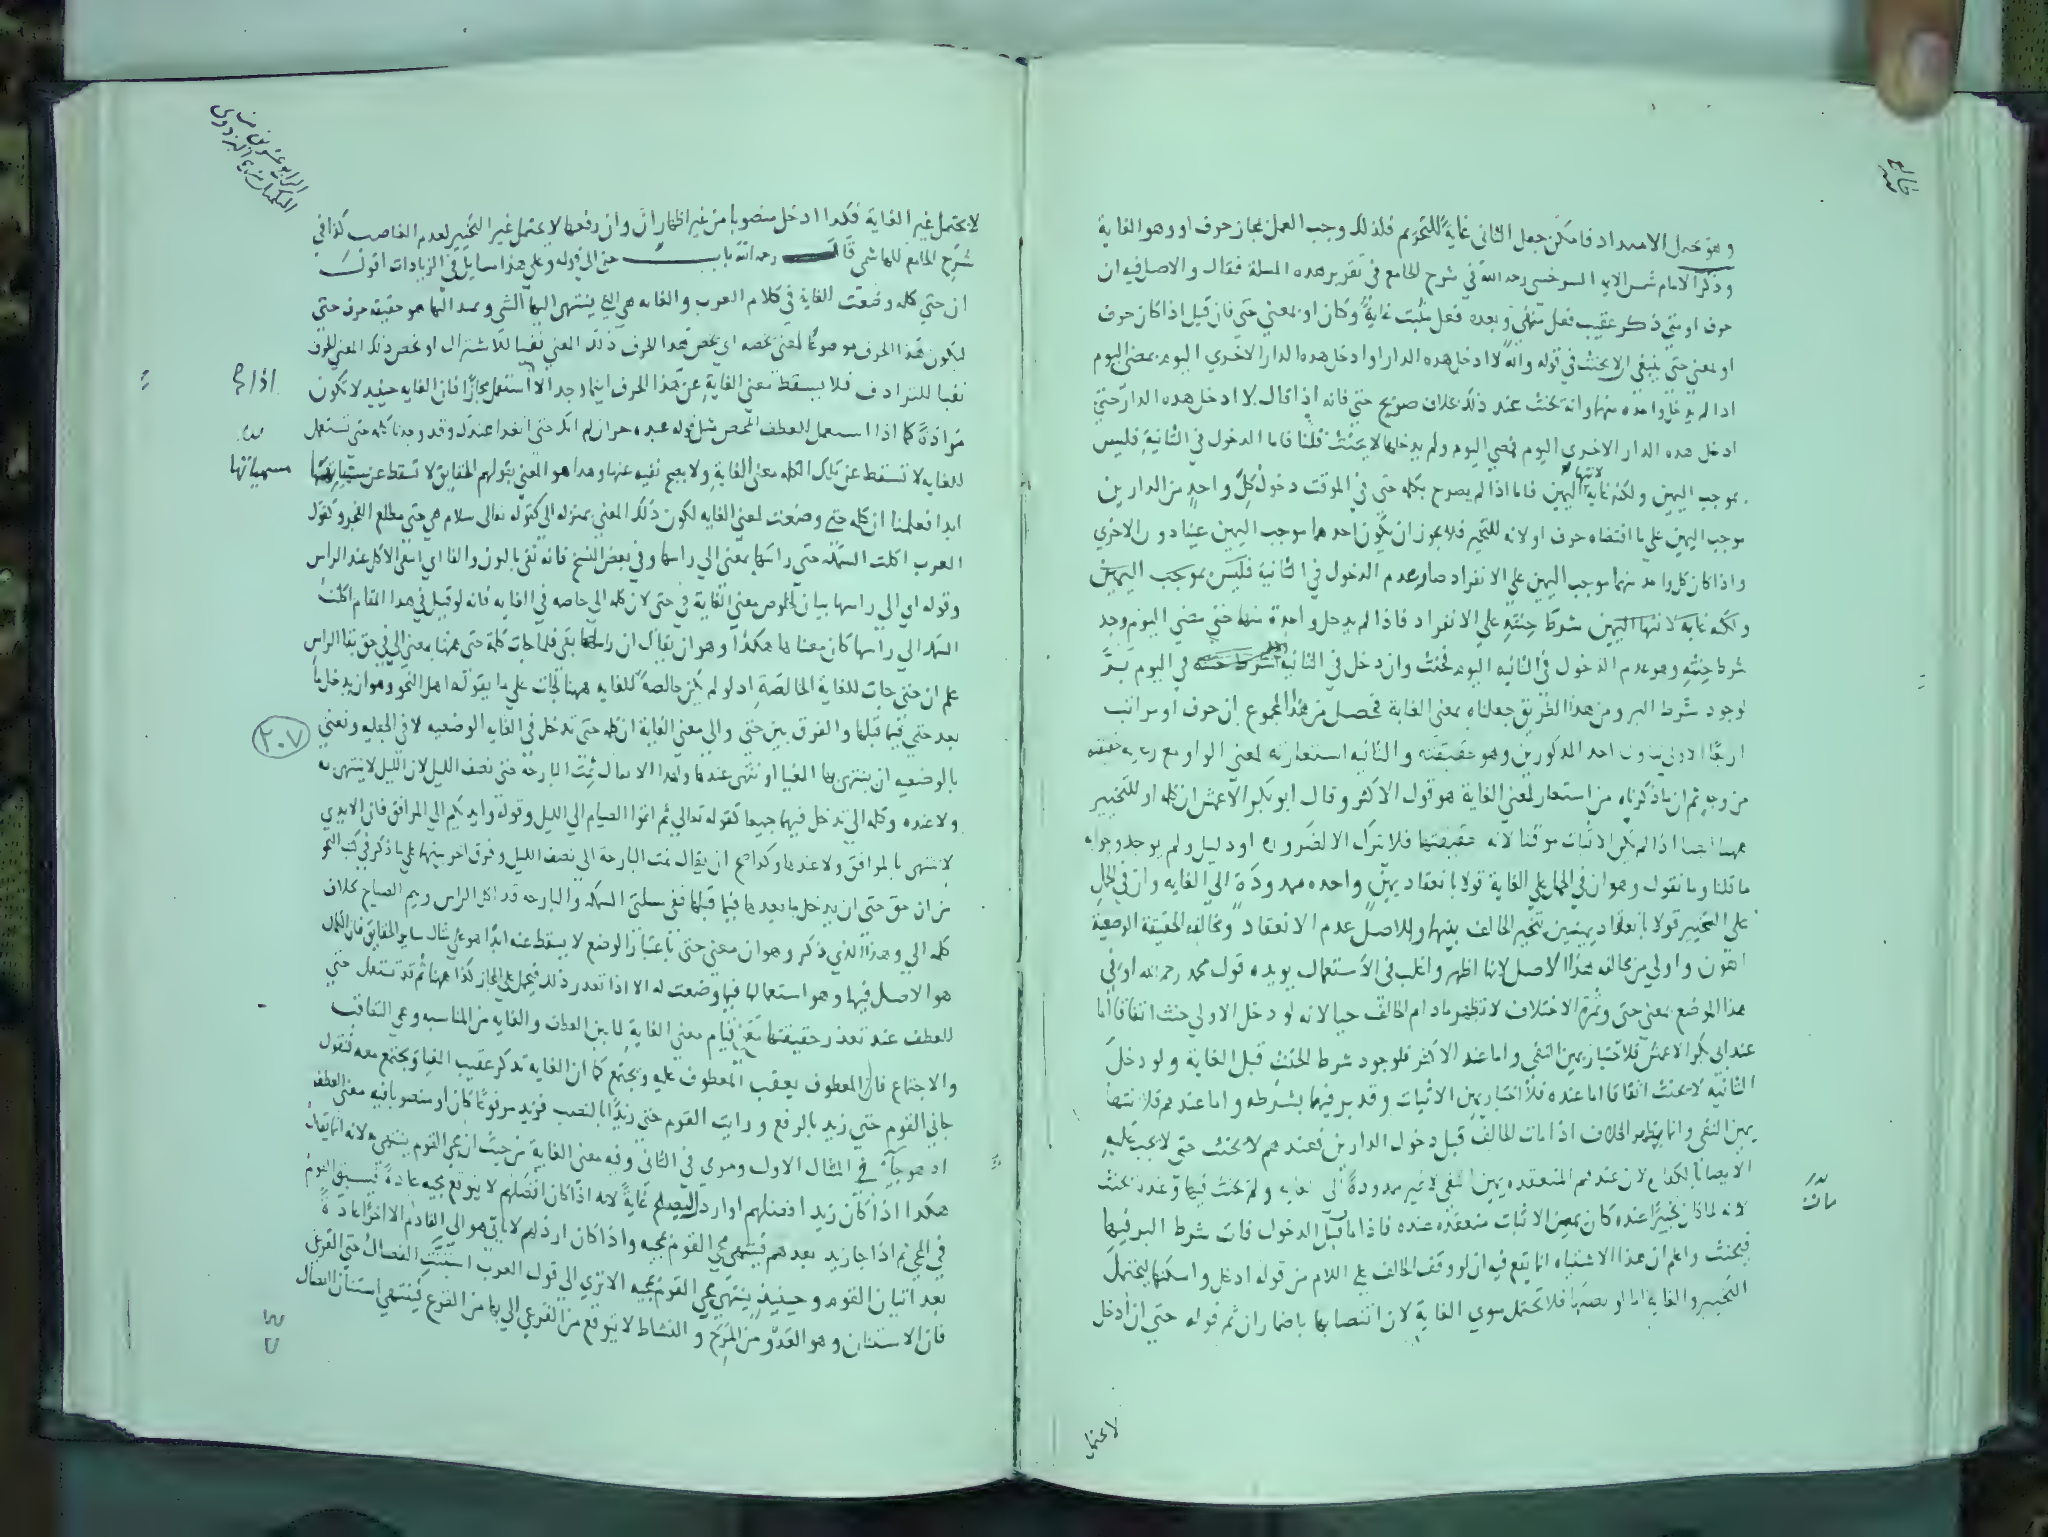 وهو يحتمل الامتداد فامكن جعل الثاني غاية للتحريم فلذلك وجب العمل بمجاز حرف او وهو الغاية
وذكر الامام شمس الايمة السرخسي رحمه الله في شرح الجامع في تقرير هذه المسلة فقال والاصل فيه ان
حرف او متى ذكر عقيب فعل منفي وبعده فعل مثبت غاية وكان او بمعنى حتى فان قيل اذا كان حرف
او بمعنى حتى ينبغي الا يحنث في قوله والله لا ادخل هذه الدار او ادخل هذه الدار الاخرى اليوم بمضي اليوم
اذا لم يدخل واحدة منهما وانه يحنث عند ذلك بخلاف صريح حتى فانه اذا قال لا ادخل هذه الدار حتى
ادخل هذه الدار الاخرى اليوم فمضى اليوم ولم يدخلها لا يحنث قلنا فاما الدخول في الثانية فليس
بموجب اليمين ولكنه غاية لانتها اليمين فاما اذا لم يصرح بكلمة حتى في الموقت دخول كل واحد من الدارين
موجب اليمين على ما اقتضاه حرف او لانه للتخيير فلا يجوز ان يكون احدهما موجب اليمين عينا دون الاخرى
واذا كان كل واحد منهما موجب اليمين على الانفراد صار عدم الدخول في الثانية فليس بموجب اليمين
ولكنه غاية لانتها اليمين شرط حنثه على الانفراد فاذا لم يدخل واحدة منهما حتى مضى اليوم وجد
شرط حنثه وهو عدم الدخول في الثانية اليوم فحنث وان دخل في الثانية في اليوم بر
لوجود شرط البر ومن هذا الطريق جعلناه بمعنى الغاية فحصل من هذا المجموع ان حرف او مراتب
اربعا الاولى احد المذكورين وهو حقيقته والثانية استعارته لمعنى الواو مع رعاية حقيقته
من وجه ثم ان ما ذكرناه من استعارته لمعنى الغاية هو قول الاكثر وقال ابو بكر الاعمش ان كلمة او للتخيير
ههنا ايضا اذا لم يكن الاثبات موقتا لانه حقيقتها فلا تترك الا لضرورة او دليل ولم يوجد وجوابه
ما قلنا وما نقول وهو ان في الحمل على الغاية قولا بانعقاد يمين واحدة ممدودة الى الغاية وان في الحمل
على التخيير قولا بانعقاد يمينين يتخير الحالف بينهما والاصل عدم الانعقاد ومخالفة الحقيقة الوضعية
اهون واولى من مخالفة هذا الاصل لانها اظهر واغلب في الاستعمال يويده قول محمد رحمه الله او في
هذا الموضع بمعنى حتى وثمرة الاختلاف لا تظهر ما دام الحالف حيا لانه لو دخل الاولى حنث اتفاقا اما
عند ابي بكر الاعمش فلاختيار يمين النفي واما عند الاكثر فلوجود شرط الحنث قبل الغاية ولو دخل
الثانية لا يحنث اتفاقا اما عنده فلاختيار يمين الاثبات وقد بر فيها بشرطه واما عندهم فلانتها
يمين النفي وانما يظهر الخلاف اذا مات الحالف قبل دخول الدارين فعندهم لا يحنث حتى لا يجب عليه
الايصا بالكفارة لان عندهم المنعقدة يمين النفي لا غير ممدودة الى غاية ولم يحنث فيها وعنده يحنث
لانه لما كان تخييرا عنده كان يمين الاثبات منعقدة عنده فاذا مات قبل الدخول فات شرط البر فيها
فيحنث واعلم ان هذا الاشتباه انما يقع فيه ان لو وقف الحالف على اللام من قوله ادخل واسكنها ليحتمل
التخيير والغاية اما لو نصبها فلا تحتمل سوى الغاية لان انتصابها باضمار ان ثم قوله حتى ان ادخل
لا يحتمل
مات
لا يحتمل غير الغاية فكذا ادخل منصوبا من غير اظهار ان وان رفعها لا يحتمل غير التخيير لعدم الغاصب كذا في
شرح الجامع للهاشمي قال رحمه الله باب حتى الى قوله وعلى هذا مسايل في الزيادات اقول
ان حتى كلمة وضعت للغاية في كلام العرب والغاية هي التي ينتهي اليها الشي ويمتد اليها هو حقيقة حرف حتى
ليكون هذا الحرف موضوعا لمعنى يخصه اي يخص هذا الحرف ذلك المعنى نفيا للاشتراك او يخص ذلك المعنى الحرف
نفيا للترادف فلا يسقط معنى الغاية عن هذا الحرف اينما وجد الا اذا استعمل مجازا فان الغاية حينيذ لا تكون
مرادة كما اذا استعمل للعطف المحض مثل قوله عبده حر ان لم اتك حتى اتغدا عندك وقد وجدنا كلمة حتى تستعمل
للغاية لا تسقط عن تلك الكلمة معنى الغاية ولا يصح نفيه عنها وهذا هو المعنى بقولهم الحقايق لا تسقط عن مسمياتها
ابدا فعلمنا ان كلمة حتى وضعت لمعنى الغاية لكون ذلك المعنى بمنزلة الى كقوله تعالى سلام هي حتى مطلع الفجر وكقول
العرب اكلت السمكة حتى راسها بمعنى الى راسها وفي بعض النسخ فانه نفى بالنون والفا اي انتفى الاكل عند الراس
وقوله اي الى راسها بيان لخلوص معنى الغاية في حتى لان كلمة الى خاصة في الغاية فانه لو قيل في هذا المقام اكلت
السمكة الى راسها كان معناها هكذا وهو ان يقال ان راسها بقي فلما جات كلمة حتى ههنا بمعنى الى في حق بقا الراس
علم ان حتى جات للغاية الخالصة اذ لو لم يكن خالصة للغاية ههنا لجات على ما يقوله اهل النحو وهو ان يدخل ما
بعد حتى فيما قبلها والفرق بين حتى والى بمعنى الغاية ان كلمة حتى تدخل في الغاية الوضعية لا في الجعلية ونعني
بالوضعية ان ينتهي بها المغيا او ينتهي عندها ولهذا لا يقال نمت البارحة حتى نصف الليل لان الليل لا ينتهي به
ولا عنده وكلمة الى تدخل فيهما جميعا كقوله تعالى ثم اتموا الصيام الى الليل وقوله وايديكم الى المرافق فان الايدي
لا تنتهي بالمرافق ولا عندها وكذا صح ان يقال نمت البارحة الى نصف الليل وفرق اخر بينهما على ما ذكر في كتب النحو
من ان حق حتى ان يدخل ما بعدها فيما قبلها ففي مسلتي السمكة والبارحة قد اكل الراس ونيم الصباح بخلاف
كلمة الى وهذا الذي ذكر وهو ان معنى حتى باعتبار الوضع لا يسقط عنه ابدا هو على مثال ساير الحقايق فان الكل
هو الاصل فيها وهو استعمالها فيما وضعت له الا اذا تعذر ذلك فيحمل على المجاز كذا ههنا ثم قد تستعمل حتى
للعطف عند تعذر حقيقتها مع قيام معنى الغاية لما بين العطف والغاية من المناسبة وهي التعاقب
والاجتماع فان المعطوف يعقب المعطوف عليه ويجتمع كما ان الغاية تذكر عقيب المغيا ويجتمع معه فنقول
جاني القوم حتى زيد بالرفع ورايت القوم حتى زيدا بالنصب فزيد مرفوعا كان او منصوبا فيه معنى العطف
اذ هو جاء في المثال الاول ومرئي في الثاني وفيه معنى الغاية من حيث ان مجي القوم ينتهي به لانه انما يقال
هكذا اذا كان زيد افضلهم او ارذلهم ليصلح غاية لانه اذا كان افضلهم لا يتوقع مجيه عادة فيسبق القوم
في المجي ثم اذا جا زيد بعدهم فينتهي مجي القوم بمجيه واذا كان ارذلهم لا ياتي هو الى القادم الا اخرا عادة
بعد اتيان القوم وحينيذ ينتهي مجي القوم بمجيه الا ترى الى قول العرب استنت الفصال حتى القرعى
فان الاستنان وهو العدو من المرح والنشاط لا يتوقع من القرعى الى بها من القرع فينتهي استنان الفصال
اذا
مسمياتها
٢٠٧